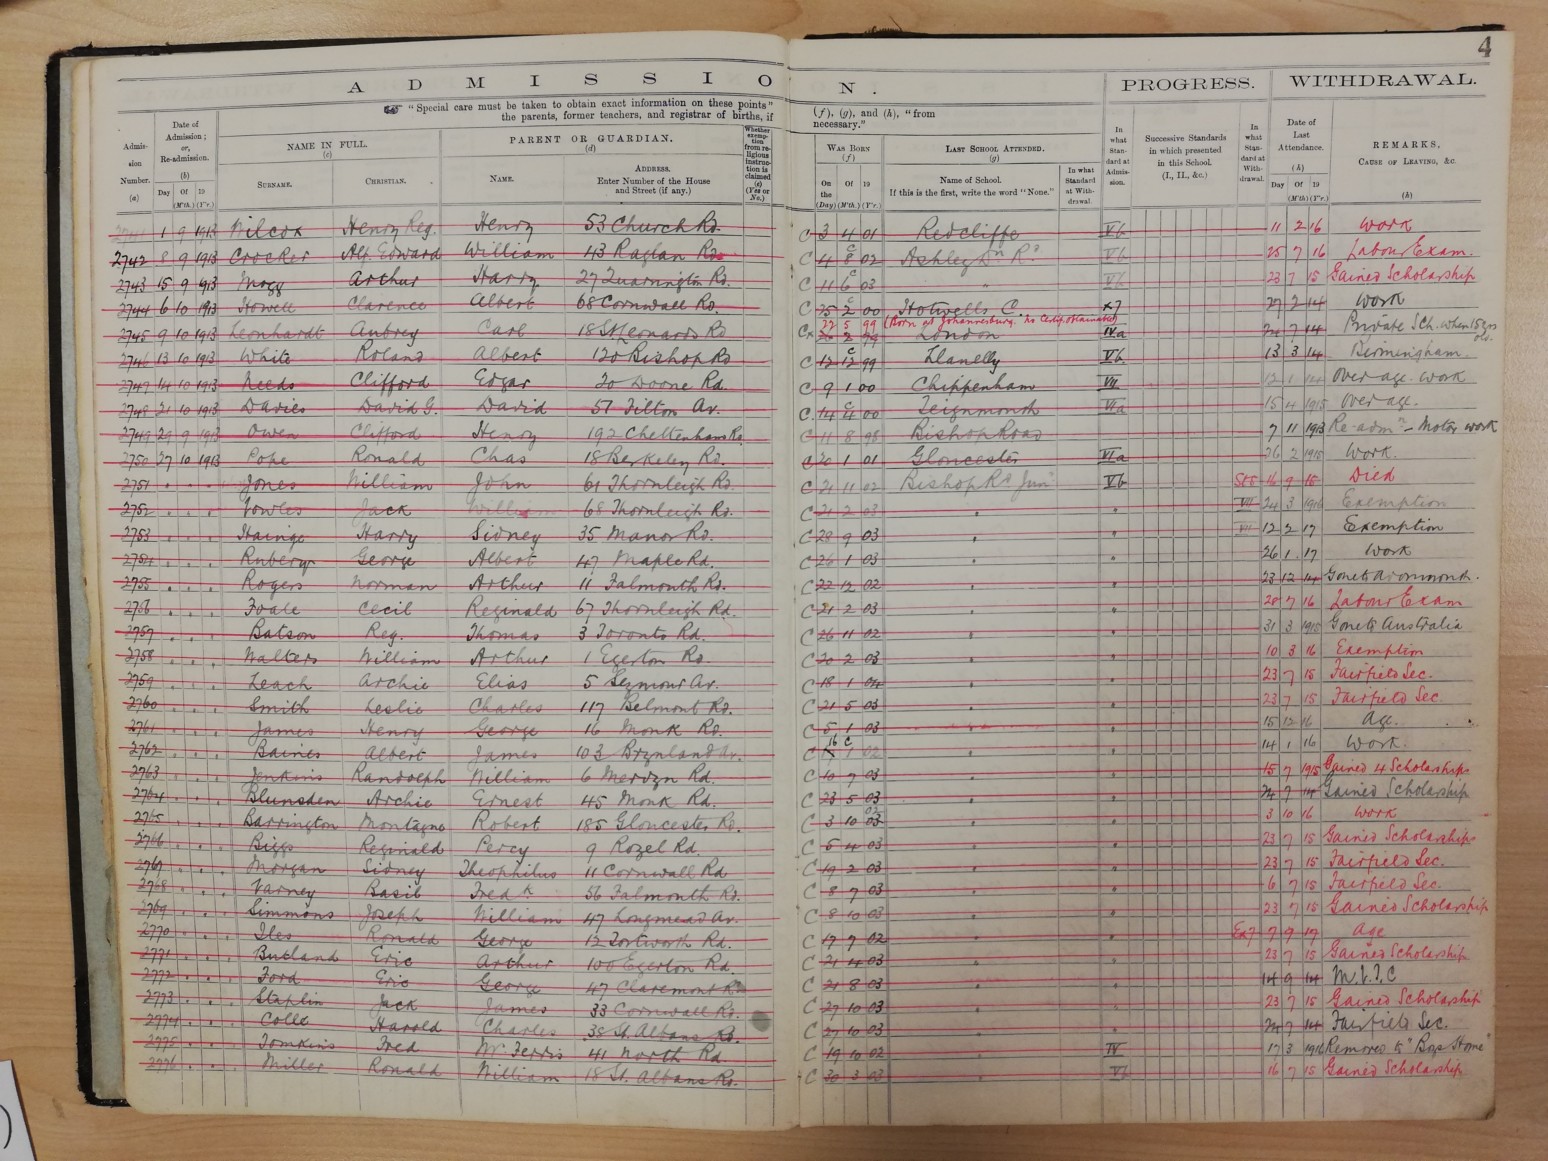 4
ADMISSION.
PROGRESS.
WITHDRAWAL.
"Special care must be taken to obtain exact information on these points" (f), (g), and (h), "from
the parents, former teachers, and registrar of births, if necessary."
Admission Number. (a)
Date of Admission; or, Re-admission. (b) Day Of (M'th.) 19 (Y'r.)
NAME IN FULL. (c) SURNAME. CHRISTIAN.
PARENT OR GUARDIAN. (d) NAME. ADDRESS. Enter Number of the House and Street (if any.)
Whether exemption from religious instruction is claimed (e) (Yes or No.)
WAS BORN (f) On the (Day) Of (M'th.) 19 (Y'r.)
LAST SCHOOL ATTENDED. (g) Name of School. If this is the first, write the word "None." In what Standard at Withdrawal.
In what Standard at Admission.
Successive Standards in which presented in this School. (I., II., &c.)
In what Standard at Withdrawal.
Date of Last Attendance. (h) Day Of (M'th) 19 (Y'r.)
REMARKS, CAUSE OF LEAVING, &c. (h)
1 9 1913 Wilcox Henry Reg. Henry 53 Church Rd. C 3 4 01 Redcliffe Vb 11 2 16 Work
2742 8 9 1913 Crocker Alf. Edward William 43 Raglan Rd. C 4 8 02 Ashley Dn Rd Vb 25 7 16 Labour Exam.
2743 15 9 1913 Mogg Arthur Harry 27 Quarrington Rd. C 11 6 03 " Vb 23 7 15 Gained Scholarship
2744 6 10 1913 Howell Clarence Albert 68 Cornwall Rd. C 25 2 00 Hotwells C. x7 27 2 14 Work
22 5 99 (Born at Johannesburg. No Certif. obtainable)
2745 9 10 1913 Leonhardt Aubrey Carl 18 St Leonards Rd London IVa 24 7 14 Private Sch. when 15 yrs old.
2746 13 10 1913 White Roland Albert 120 Bishop Rd C 12 12 99 Llanelly Vb 13 3 14 Birmingham.
2747 14 10 1913 Needs Clifford Edgar 20 Doone Rd. C 9 1 00 Chippenham VII 12 1 14 Over age. Work
2748 21 10 1913 Davies David G. David 57 Filton Av. C 14 4 00 Teignmouth VIa 15 4 1915 Over age.
2749 29 9 1913 Owen Clifford Henry 192 Cheltenham Rd. C 11 8 98 Bishop Road 7 11 1913 Re-admn - Motor work
2750 27 10 1913 Pope Ronald Chas 18 Berkeley Rd. C 20 1 01 Gloucester VIa 26 2 1915 Work.
2751 . . . Jones William John 61 Thornleigh Rd. C 21 11 02 Bishop Rd Junr Vb St5 16 9 15 Died
2752 . . . Fowles Jack William 68 Thornleigh Rd. C 21 2 03 " " VII 24 3 1916 Exemption
2753 . . . Hainge Harry Sidney 35 Manor Rd. C 28 9 03 " " VII 12 2 17 Exemption
2754 . . . Rubery George Albert 47 Maple Rd. C 26 1 03 " " 26 1 17 Work
2755 . . . Rogers Norman Arthur 11 Falmouth Rd. C 22 12 02 " " 23 12 14 Gone to Avonmouth.
2756 . . . Foale Cecil Reginald 67 Thornleigh Rd. C 21 2 03 " " 28 7 16 Labour Exam
2757 . . . Batson Reg. Thomas 3 Toronto Rd. C 26 11 02 " " 31 3 1915 Gone to Australia
2758 . . . Walters William Arthur 1 Egerton Rd. C 20 2 03 " " 10 3 16 Exemption
2759 . . . Leach Archie Elias 5 Seymour Av. C 18 1 04 " " 23 7 15 Fairfield Sec.
2760 . . . Smith Leslie Charles 117 Belmont Rd. C 21 5 03 " " 23 7 15 Fairfield Sec.
2761 . . . James Henry George 16 Monk Rd. C 5 1 03 " " 15 12 16 Age.
2762 . . . Baines Albert James 103 Brynland Av. C 16 1 02 " " 14 1 16 Work.
2763 . . . Jenkins Randolph William 6 Mervyn Rd. C 10 7 03 " " 15 7 1915 Gained 4 Scholarships
2764 . . . Blunsden Archie Ernest 45 Monk Rd. C 23 5 03 " " 24 7 14 Gained Scholarship
2765 . . . Barrington Montague Robert 185 Gloucester Rd. C 3 10 03 " " 3 10 16 Work
2766 . . . Biggs Reginald Percy 9 Rozel Rd. C 5 4 03 " " 23 7 15 Gained Scholarships
2767 . . . Morgan Sidney Theophilus 11 Cornwall Rd C 19 2 03 " " 23 7 15 Fairfield Sec.
2768 . . . Varney Basil Fredk 56 Falmouth Rd. C 8 7 03 " " 6 7 15 Fairfield Sec.
2769 . . . Simmons Joseph William 47 Longmead Av. C 8 10 03 " " 23 7 15 Gained Scholarship
2770 . . . Iles Ronald George 12 Tortworth Rd. C 17 7 02 " " Ex7 7 9 17 Age
2771 . . . Butland Eric Arthur 100 Egerton Rd. C 21 4 03 " " 23 7 15 Gained Scholarship
2772 . . . Ford Eric George 47 Claremont Rd C 21 8 03 " " 14 9 14 M.V.T.C
2773 . . . Staplin Jack James 33 Cornwall Rd. C 27 10 03 " " 23 7 15 Gained Scholarship
2774 . . . Colle Harold Charles 38 St. Albans Rd. C 27 10 03 " " 24 7 14 Fairfield Sec.
2775 . . . Tomkins Fred Mr Ferris 41 North Rd. C 19 10 02 " IV 17 3 1916 Removed to "Boys Home"
2776 . . . Miller Ronald William 18 St. Albans Rd. C 30 3 03 " VI 16 7 15 Gained Scholarship